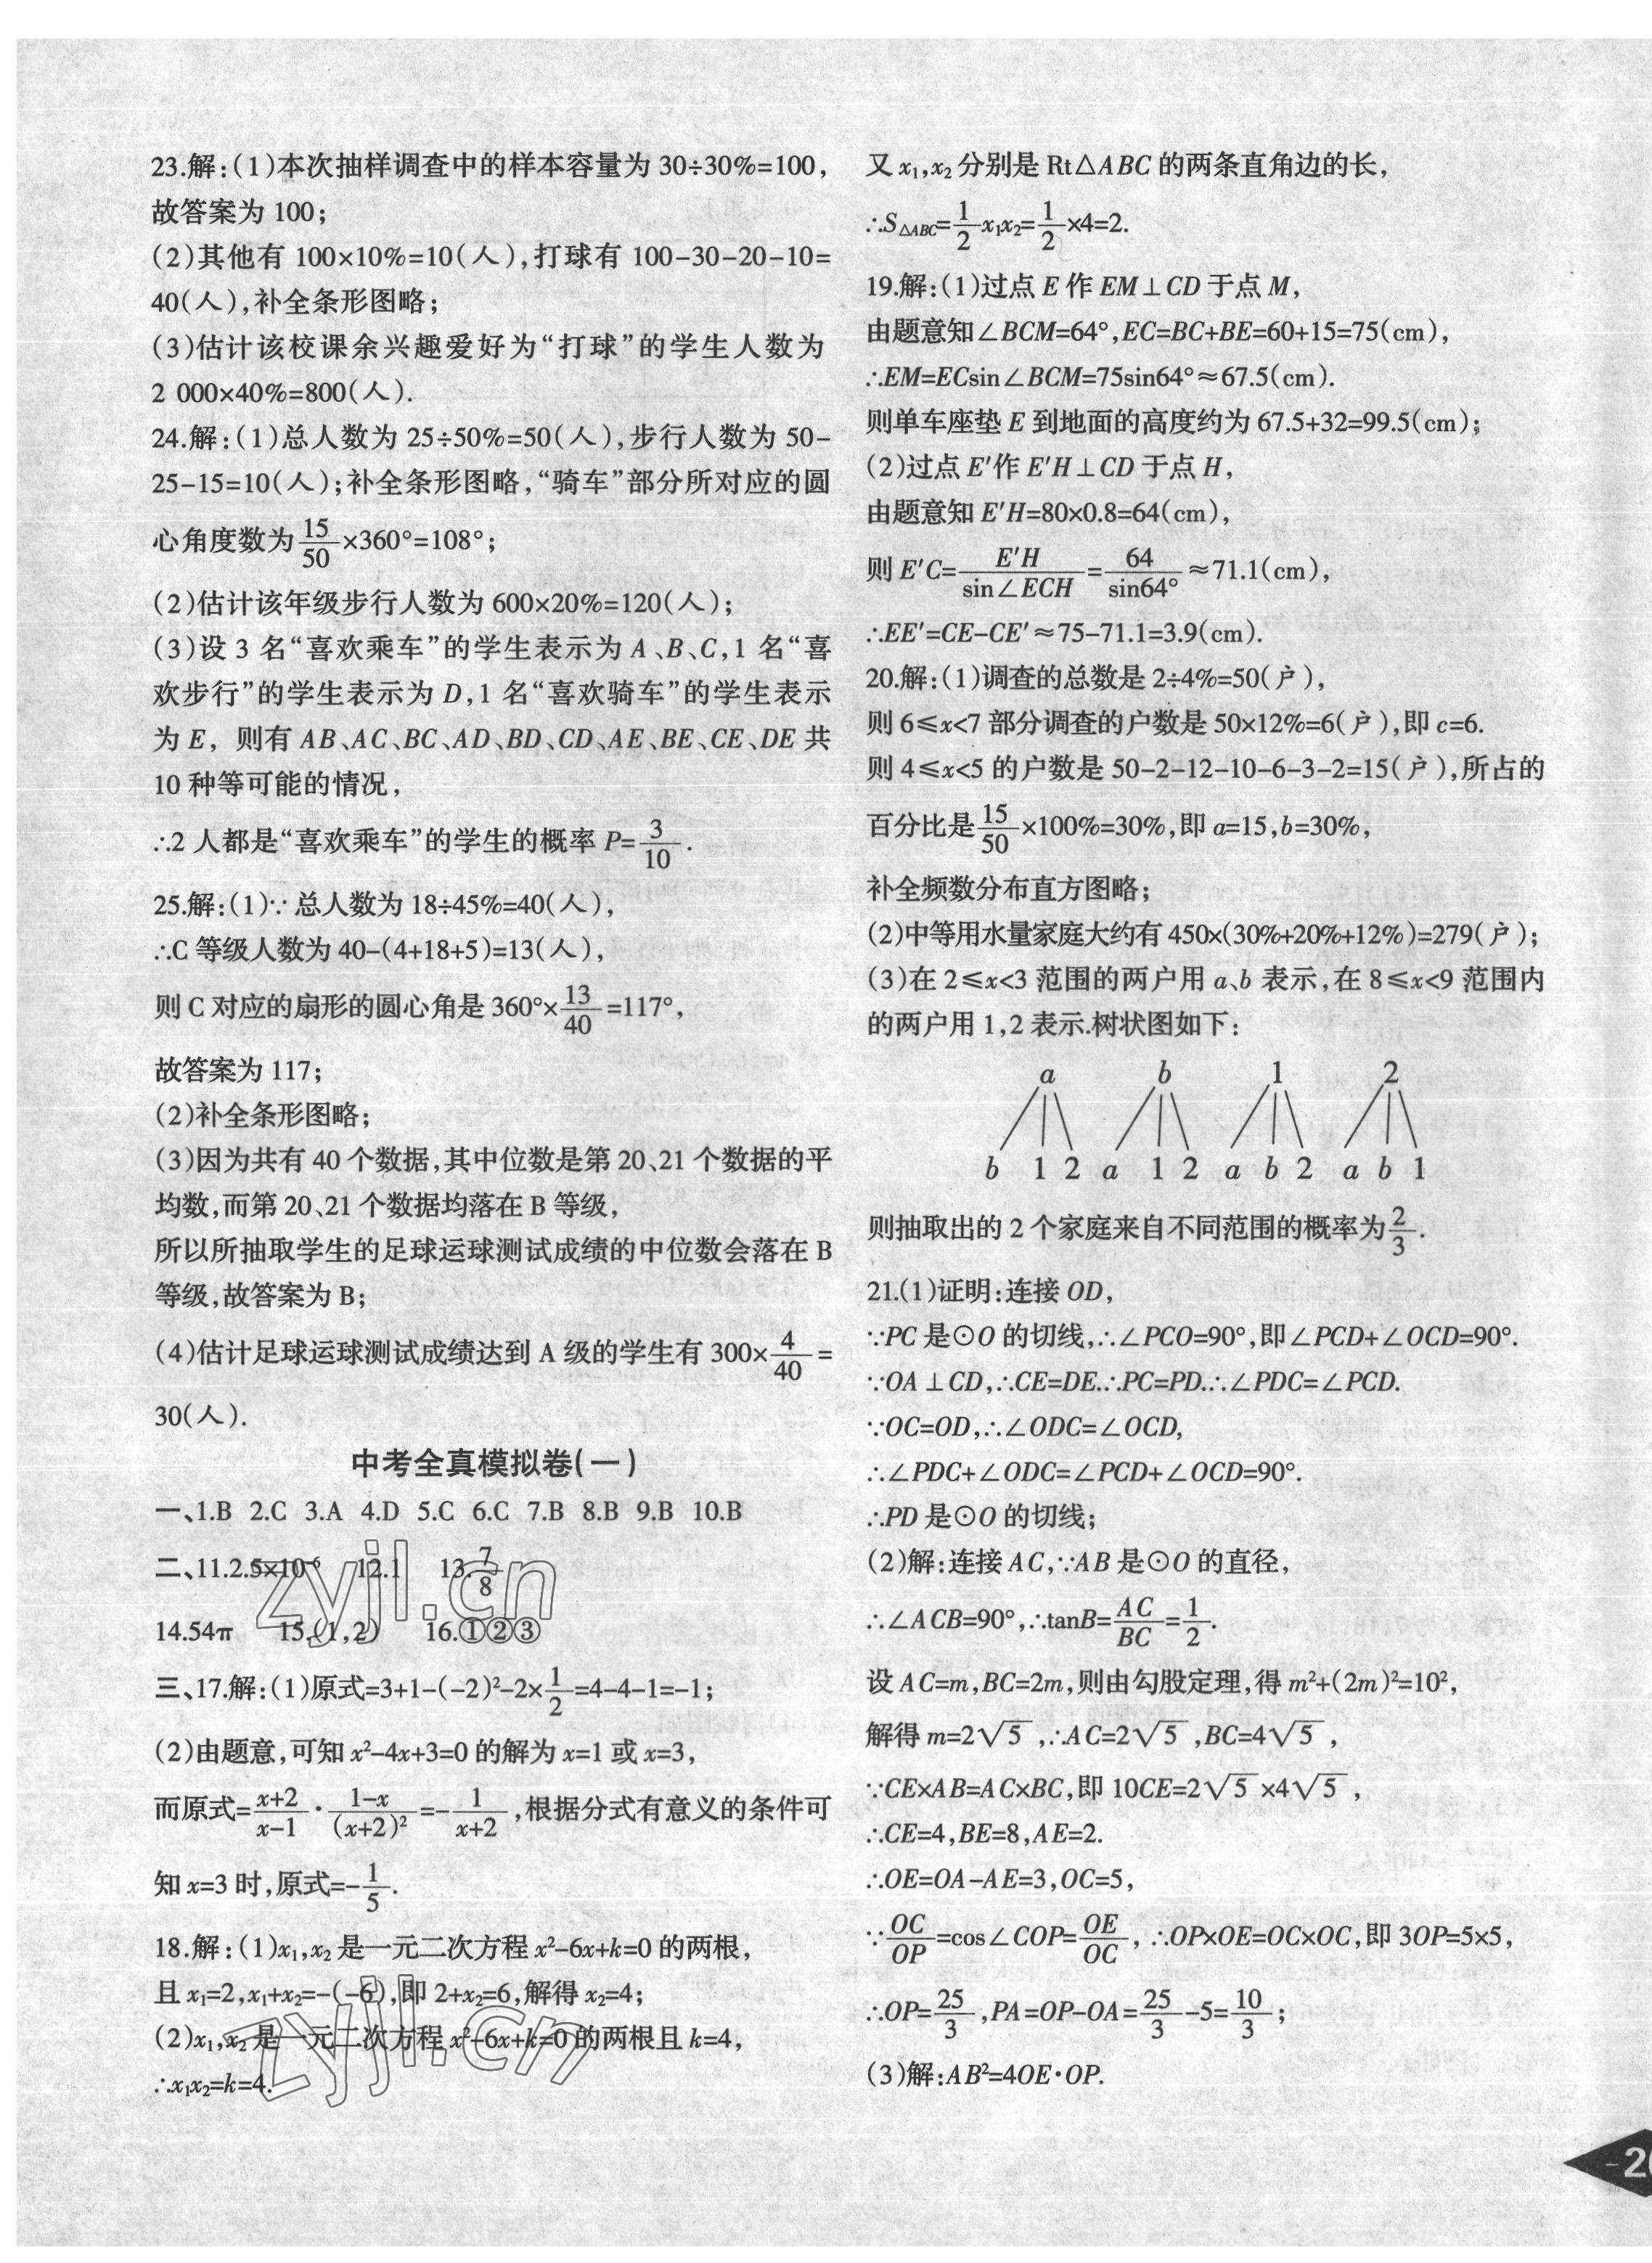 23.解:(1)本次抽样调查中的样本容量为 30÷30%=100,
故答案为 100;
(2)其他有 100×10%=10(人),打球有 100-30-20-10=
40(人),补全条形图略;
(3)估计该校课余兴趣爱好为“打球”的学生人数为
2 000×40%=800(人).
24.解:(1)总人数为 25÷50%=50(人),步行人数为 50-
25-15=10(人);补全条形图略,“骑车”部分所对应的圆
心角度数为 15/50 ×360°=108°;
(2)估计该年级步行人数为 600×20%=120(人);
(3)设 3 名“喜欢乘车”的学生表示为 A、B、C,1 名“喜
欢步行”的学生表示为 D,1 名“喜欢骑车”的学生表示
为 E, 则有 AB、AC、BC、AD、BD、CD、AE、BE、CE、DE 共
10 种等可能的情况,
∴2 人都是“喜欢乘车”的学生的概率 P=3/10.
25.解:(1)∵总人数为 18÷45%=40(人),
∴C 等级人数为 40-(4+18+5)=13(人),
则 C 对应的扇形的圆心角是 360°×13/40=117°,
故答案为 117;
(2)补全条形图略;
(3)因为共有 40 个数据,其中位数是第 20、21 个数据的平
均数,而第 20、21 个数据均落在 B 等级,
所以所抽取学生的足球运球测试成绩的中位数会落在 B
等级,故答案为 B;
(4)估计足球运球测试成绩达到 A 级的学生有 300×4/40=
30(人).
中考全真模拟卷(一)
一、1.B 2.C 3.A 4.D 5.C 6.C 7.B 8.B 9.B 10.B
二、11.2.5×10⁻⁶ 12.1 13.7/8
14.54π 15.(1,2) 16.①②③
三、17.解:(1)原式=3+1-(-2)²-2×1/2=4-4-1=-1;
(2)由题意,可知 x²-4x+3=0 的解为 x=1 或 x=3,
而原式=(x+2)/(x-1)·(1-x)/(x+2)²=-1/(x+2),根据分式有意义的条件可
知 x=3 时,原式=-1/5.
18.解:(1)x₁,x₂ 是一元二次方程 x²-6x+k=0 的两根,
且 x₁=2,x₁+x₂=-(-6),即 2+x₂=6,解得 x₂=4;
(2)x₁,x₂ 是一元二次方程 x²-6x+k=0 的两根且 k=4,
∴x₁x₂=k=4.
zyjl.cn
zyjl.cn
又 x₁,x₂ 分别是 Rt△ABC 的两条直角边的长,
∴S△ABC=1/2x₁x₂=1/2×4=2.
19.解:(1)过点 E 作 EM⊥CD 于点 M,
由题意知∠BCM=64°,EC=BC+BE=60+15=75(cm),
∴EM=ECsin∠BCM=75sin64°≈67.5(cm).
则单车座垫 E 到地面的高度约为 67.5+32=99.5(cm);
(2)过点 E′作 E′H⊥CD 于点 H,
由题意知 E′H=80×0.8=64(cm),
则 E′C=E′H/sin∠ECH=64/sin64°≈71.1(cm),
∴EE′=CE-CE′≈75-71.1=3.9(cm).
20.解:(1)调查的总数是 2÷4%=50(户),
则 6≤x<7 部分调查的户数是 50×12%=6(户),即 c=6.
则 4≤x<5 的户数是 50-2-12-10-6-3-2=15(户),所占的
百分比是 15/50×100%=30%,即 a=15,b=30%,
补全频数分布直方图略;
(2)中等用水量家庭大约有 450×(30%+20%+12%)=279(户);
(3)在 2≤x<3 范围的两户用 a、b 表示,在 8≤x<9 范围内
的两户用 1,2 表示.树状图如下:
a b 1 2
b 1 2 a 1 2 a b 2 a b 1
则抽取出的 2 个家庭来自不同范围的概率为2/3.
21.(1)证明:连接 OD,
∵PC 是⊙O 的切线,∴∠PCO=90°,即∠PCD+∠OCD=90°.
∵OA⊥CD,∴CE=DE.∴PC=PD.∴∠PDC=∠PCD.
∵OC=OD,∴∠ODC=∠OCD,
∴∠PDC+∠ODC=∠PCD+∠OCD=90°.
∴PD 是⊙O 的切线;
(2)解:连接 AC,∵AB 是⊙O 的直径,
∴∠ACB=90°,∴tanB=AC/BC=1/2.
设 AC=m,BC=2m,则由勾股定理,得 m²+(2m)²=10²,
解得 m=2√5,∴AC=2√5,BC=4√5,
∵CE×AB=AC×BC,即 10CE=2√5×4√5,
∴CE=4,BE=8,AE=2.
∴OE=OA-AE=3,OC=5,
∵OC/OP=cos∠COP=OE/OC, ∴OP×OE=OC×OC,即 3OP=5×5,
∴OP=25/3,PA=OP-OA=25/3-5=10/3;
(3)解:AB²=4OE·OP.